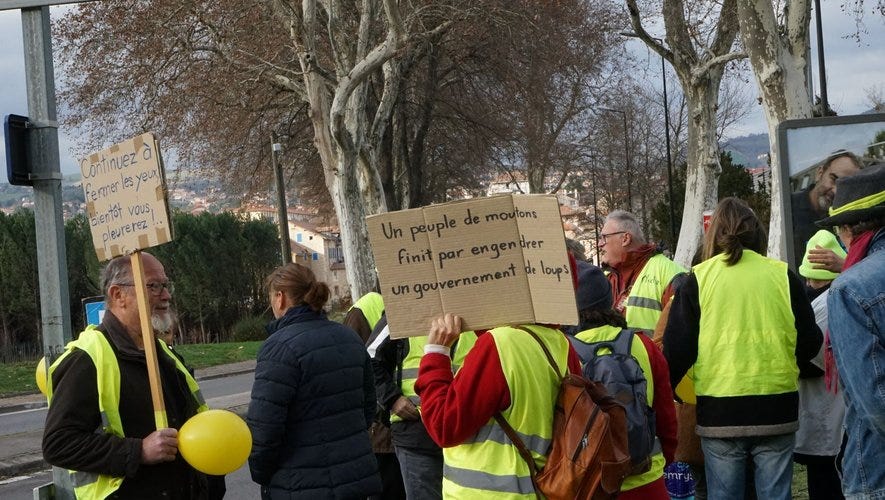 Continuez à
fermer les yeux
bientôt vous
pleurerez!..
Un peuple de moutons
finit par engendrer
un gouvernement de loups